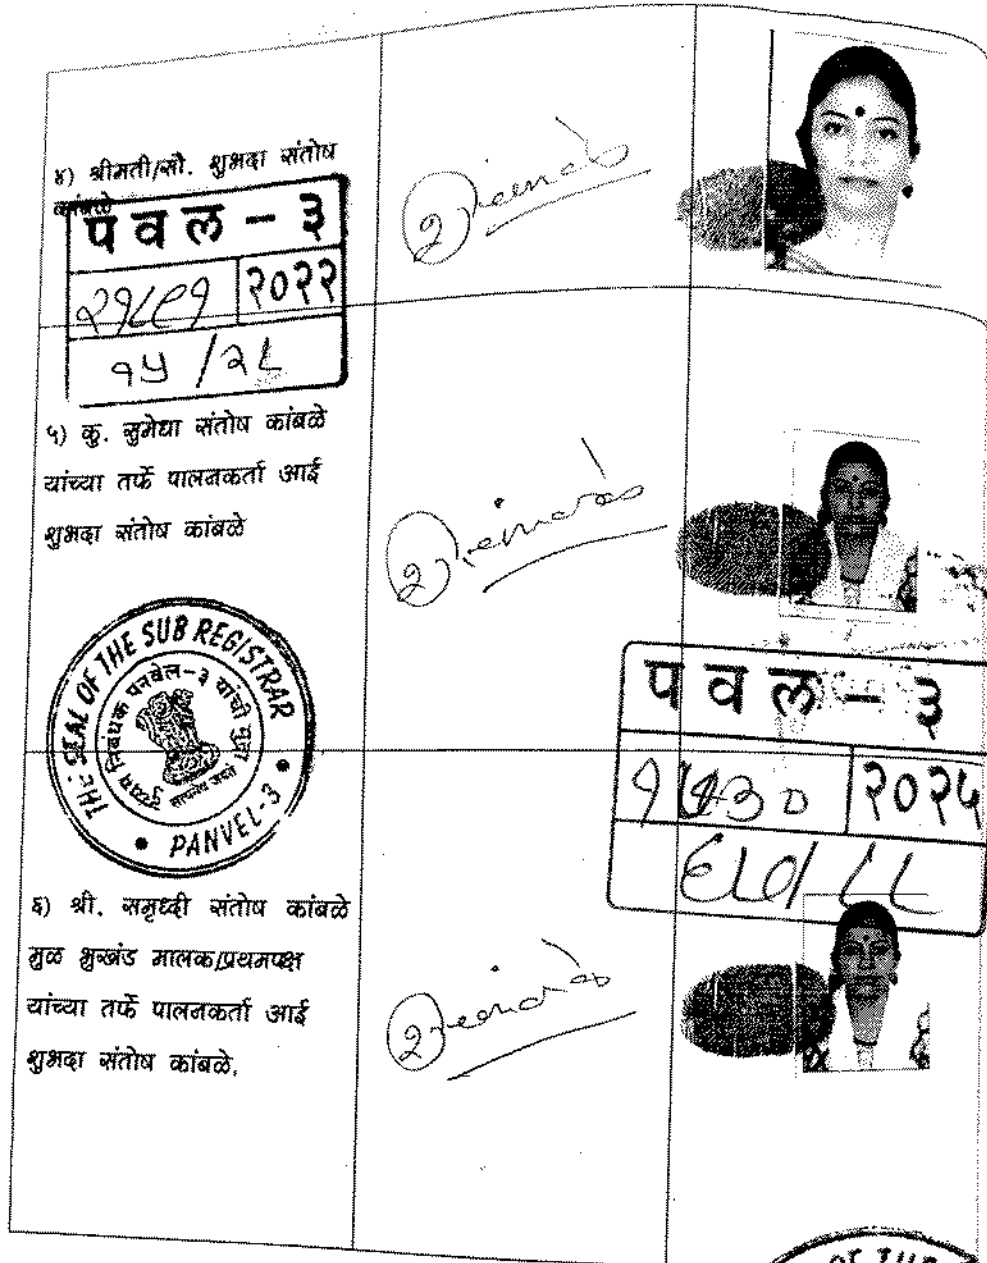 ४) श्रीमती/सौ. शुभदा संतोष
कांबळे
पवल - ३
२०२२
१५/२८
५) कु. सुमेधा संतोष कांबळे
यांच्या तर्फे पालनकर्ता आई
शुभदा संतोष कांबळे
THE SEAL OF THE SUB REGISTRAR
दुय्यम निबंधक पनवेल-३ यांची मुद्रा
सत्यमेव जयते
PANVEL-3
पवल - ३
२०२५
६) श्री. समृध्दी संतोष कांबळे
मुळ भुखंड मालक/प्रथमपक्ष
यांच्या तर्फे पालनकर्ता आई
शुभदा संतोष कांबळे.
OF THE